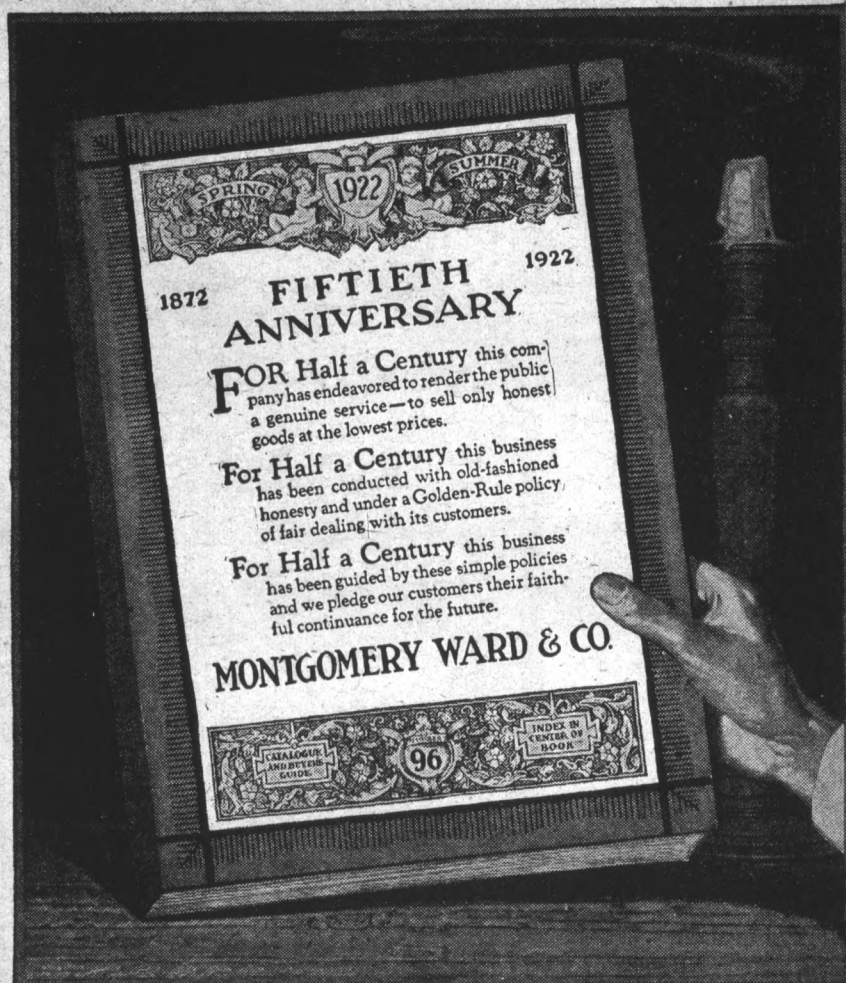 SPRING 1922 SUMMER
1872 FIFTIETH 1922
ANNIVERSARY
FOR Half a Century this com-
pany has endeavored to render the public
a genuine service—to sell only honest
goods at the lowest prices.
For Half a Century this business
has been conducted with old-fashioned
honesty and under a Golden-Rule policy
of fair dealing with its customers.
For Half a Century this business
has been guided by these simple policies
and we pledge our customers their faith-
ful continuance for the future.
MONTGOMERY WARD & CO.
CATALOGUE
AND BUYERS
GUIDE
96
INDEX IN
CENTER OF
BOOK